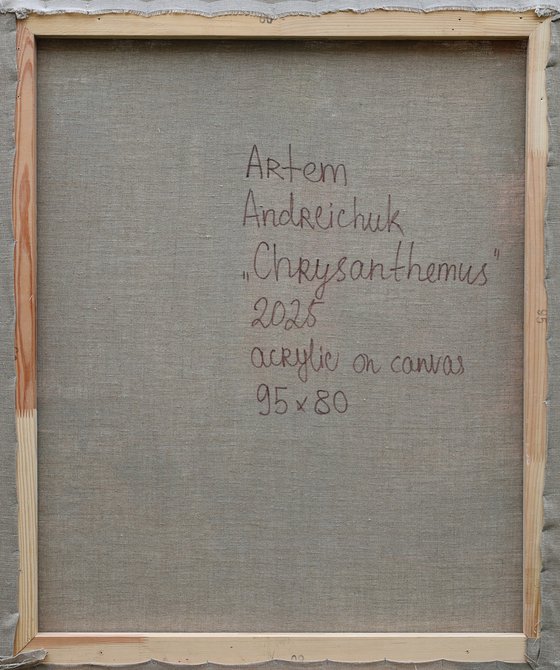 Artem
Andreichuk
„Chrysanthemus"
2025
acrylic on canvas
95 x 80
95